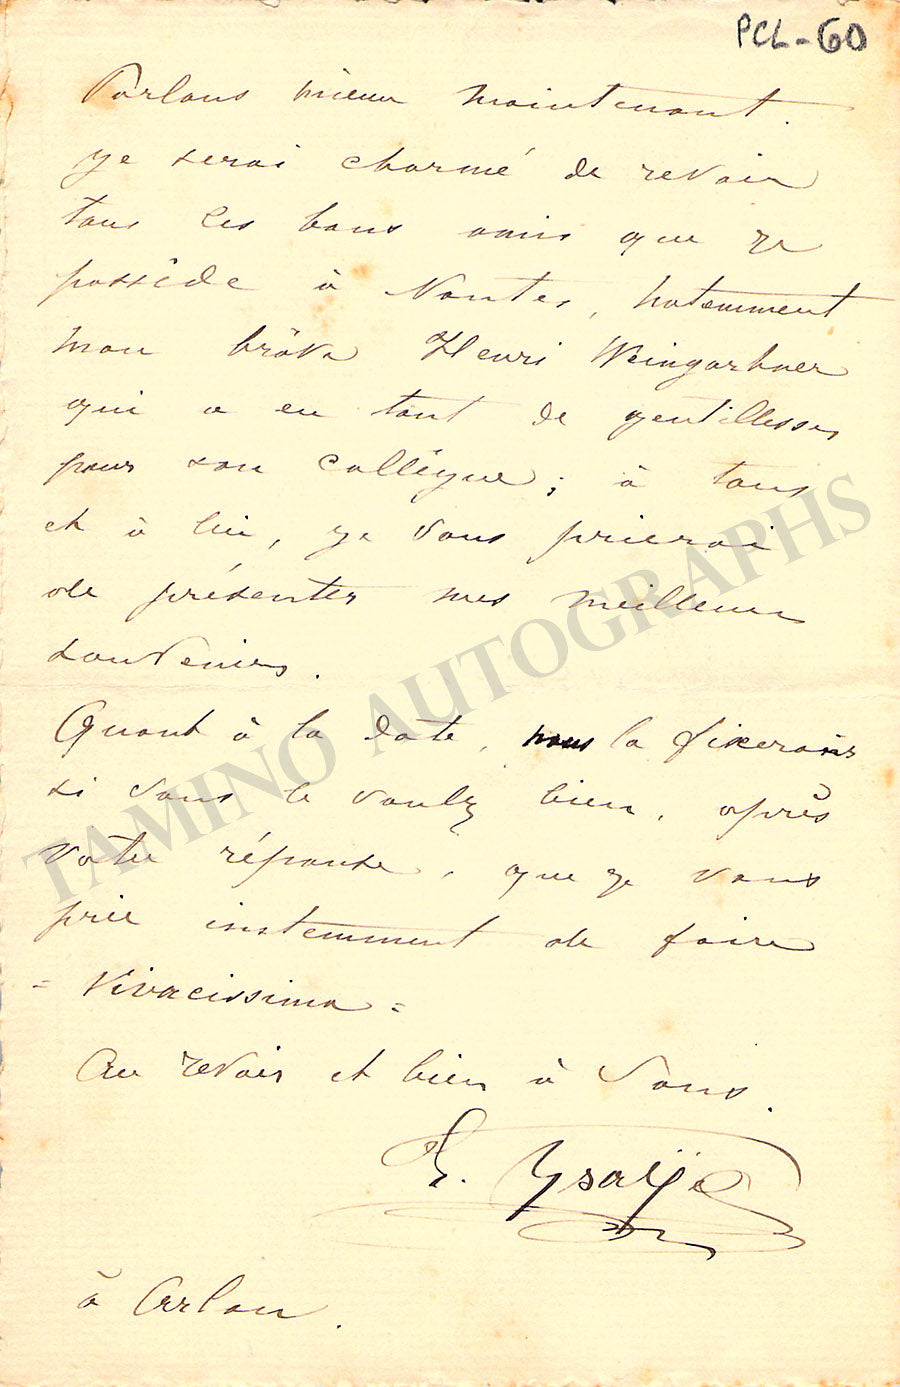 PCL-60
Parlons mieux maintenant.
Je serai charmé de revoir
tous les bons amis que je
possède à Nantes, notemment
mon brâve Henri Weingartner
qui a eu tant de gentillesses
pour son collègue; à tous
et à lui, je vous prierai
de présenter mes meilleurs
souvenirs.
Quant à la date, nous la fixerons
si vous le voulez bien, après
votre réponse, que je vous
prie instemment de faire
= Vivacissimo =
Au revoir et bien à vous.
E. Ysaÿe
à Arlon.
TAMINO AUTOGRAPHS